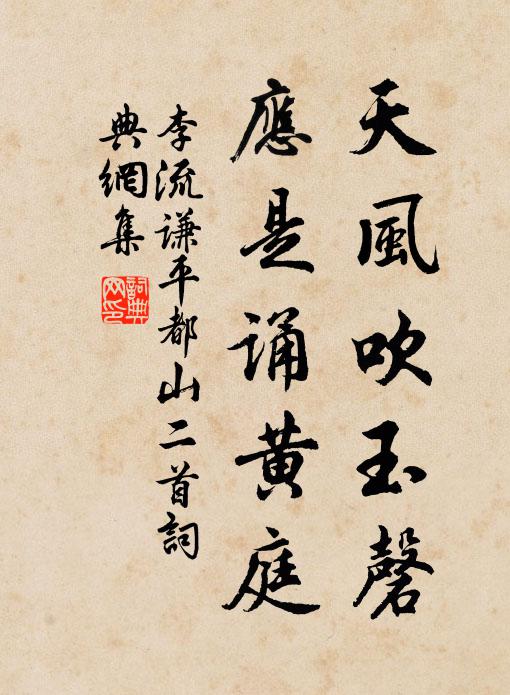 天風吹玉磬
應是誦黃庭
李流謙平都山二首詞
典網集
詞典
网印